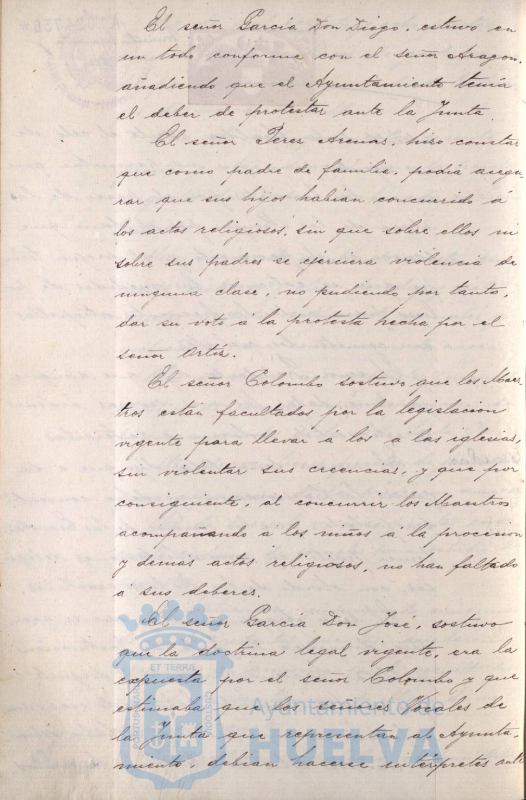 El señor García Don Diego, estuvo en
un todo conforme con el señor Aragon,
añadiendo que el Ayuntamiento tenía
el deber de protestar ante la Junta.
El señor Perez Arenas, hizo constar
que como padre de familia, podia asegu-
rar que sus hijos habian concurrido á
los actos religiosos, sin que sobre ellos ni
sobre sus padres se ejerciera violencia de
ninguna clase, no pudiendo por tanto,
dar su voto á la protesta hecha por el
señor Ortíz.
El señor Colombo sostuvo que los Maes-
tros están facultados por la legislacion
vigente para llevar á los á las iglesias,
sin violentar sus creencias, y que por
consiguiente, al concurrir los Maestros
acompañando á los niños á la procesion
y demás actos religiosos, no han faltado
á sus deberes.
El señor García Don José, sostuvo
que la doctrina legal vigente, era la
expuesta por el señor Colombo y que
estimaba que los señores Vocales de
la Junta que representan al Ayunta-
miento, debian hacerse intérpretes ante
ET TERRÆ
Ayuntamiento de
HUELVA